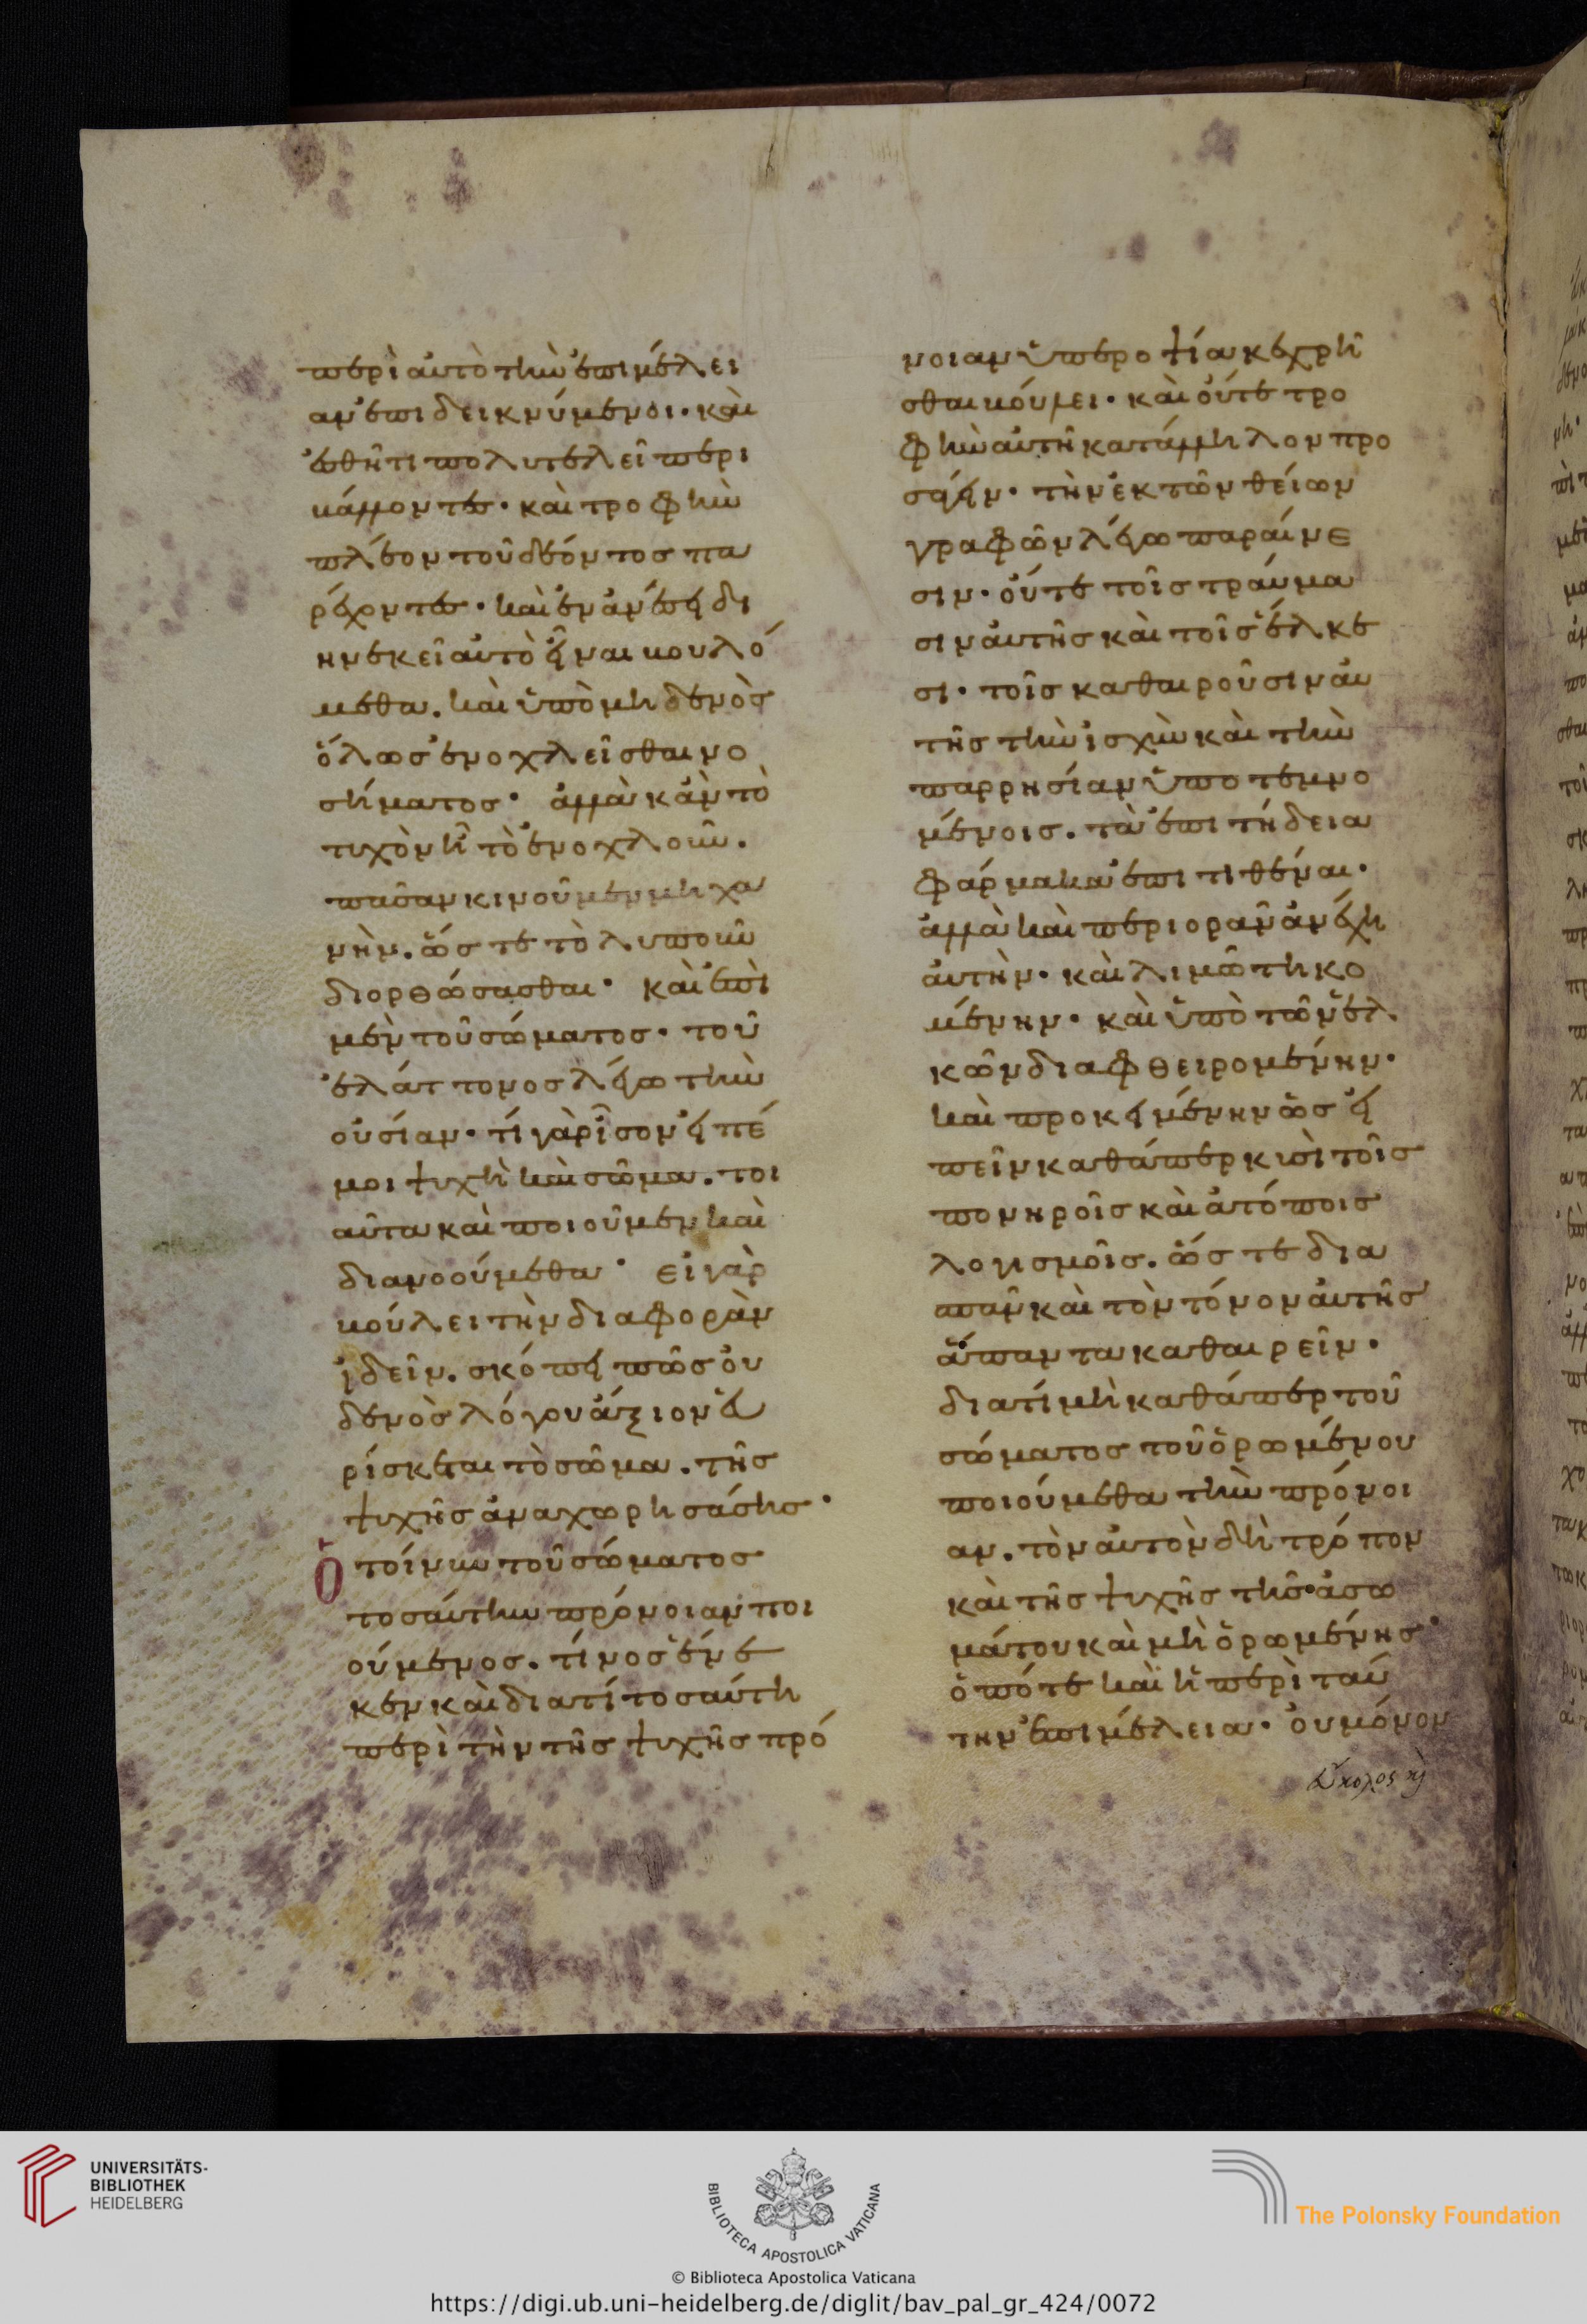 περὶ αὐτὸ τὴν ἐπιμέλει
αν ἐπιδεικνύμενοι· καὶ
ἐσθῆτι πολυτελεῖ περι
βάλλοντες· καὶ τροφὴν
πλέον τοῦ δέοντος πα
ρέχοντες· καὶ ἐν ἀνέσει δι
ηνεκεῖ αὐτὸ εἶναι βουλό
μεθα. καὶ ὑπὸ μηδενὸς
ὅλως ἐνοχλεῖσθαι νο
σήματος· ἀλλὰ κἂν τὸ
τυχὸν ᾖ τὸ ἐνοχλοῦν.
πᾶσαν κινοῦμεν μηχα
νὴν. ὥστε τὸ λυποῦν
διορθώσασθαι· καὶ ἐπὶ
μὲν τοῦ σώματος· τοῦ
ἐλάττονος λέγω τὴν
οὐσίαν· τί γὰρ ἴσον εἰπέ
μοι ψυχὴ καὶ σῶμα. τοι
αῦτα καὶ ποιοῦμεν καὶ
διανοούμεθα· εἰ γὰρ
βούλει τὴν διαφορὰν
ἰδεῖν. σκόπει πῶς οὐ
δενὸς λόγου ἄξιον εὑ
ρίσκεται τὸ σῶμα. τῆς
ψυχῆς ἀναχωρησάσης·
Ὁ τοίνυν τοῦ σώματος
τοσαύτην πρόνοιαν ποι
ούμενος. τίνος ἕνε
κεν καὶ διατί τοσαύτη
περὶ τὴν τῆς ψυχῆς πρό
νοιαν ὑπεροψία κεχρῆ
σθαι βούλει· καὶ οὔτε τρο
φὴν αὐτῆ κατάλληλον προ
σάγειν· τὴν ἐκ τῶν θείων
γραφῶν λέγω παραίνε
σιν· οὔτε τοῖς τραύμα
σιν αὐτῆς καὶ τοῖς ἕλκε
σι· τοῖς καθαιροῦσιν αὐ
τῆς τὴν ἰσχὺν καὶ τὴν
παρρησίαν ὑποτεμνο
μένοις. τὰ ἐπιτήδεια
φάρμακα ἐπιτιθέναι·
ἀλλὰ καὶ περιορᾶν ἀνέχη
αὐτὴν· καὶ λιμῶ τηκο
μένην· καὶ ὑπὸ τῶν ἑλ
κῶν διαφθειρομένην·
καὶ προκειμένην ὡς εἰ
πεῖν καθάπερ κυσὶ τοῖς
πονηροῖς καὶ ἀτόποις
λογισμοῖς. ὥστε δια
σπᾶν καὶ τὸν τόνον αὐτῆς
ἅπαντα καθαιρεῖν·
διατί μὴ καθάπερ τοῦ
σώματος τοῦ ὁρωμένου
ποιούμεθα τὴν πρόνοι
αν. τὸν αὐτὸν δὴ τρόπον
καὶ τῆς ψυχῆς τῆς ἀσω
μάτου καὶ μὴ ὁρωμένης·
ὁπότε καὶ ἡ περὶ ταύ
την ἐπιμέλεια· οὐ μόνον
εὔκολος κὶ
UNIVERSITÄTS-
BIBLIOTHEK
HEIDELBERG
BIBLIOTECA APOSTOLICA VATICANA
The Polonsky Foundation
© Biblioteca Apostolica Vaticana
https://digi.ub.uni-heidelberg.de/diglit/bav_pal_gr_424/0072